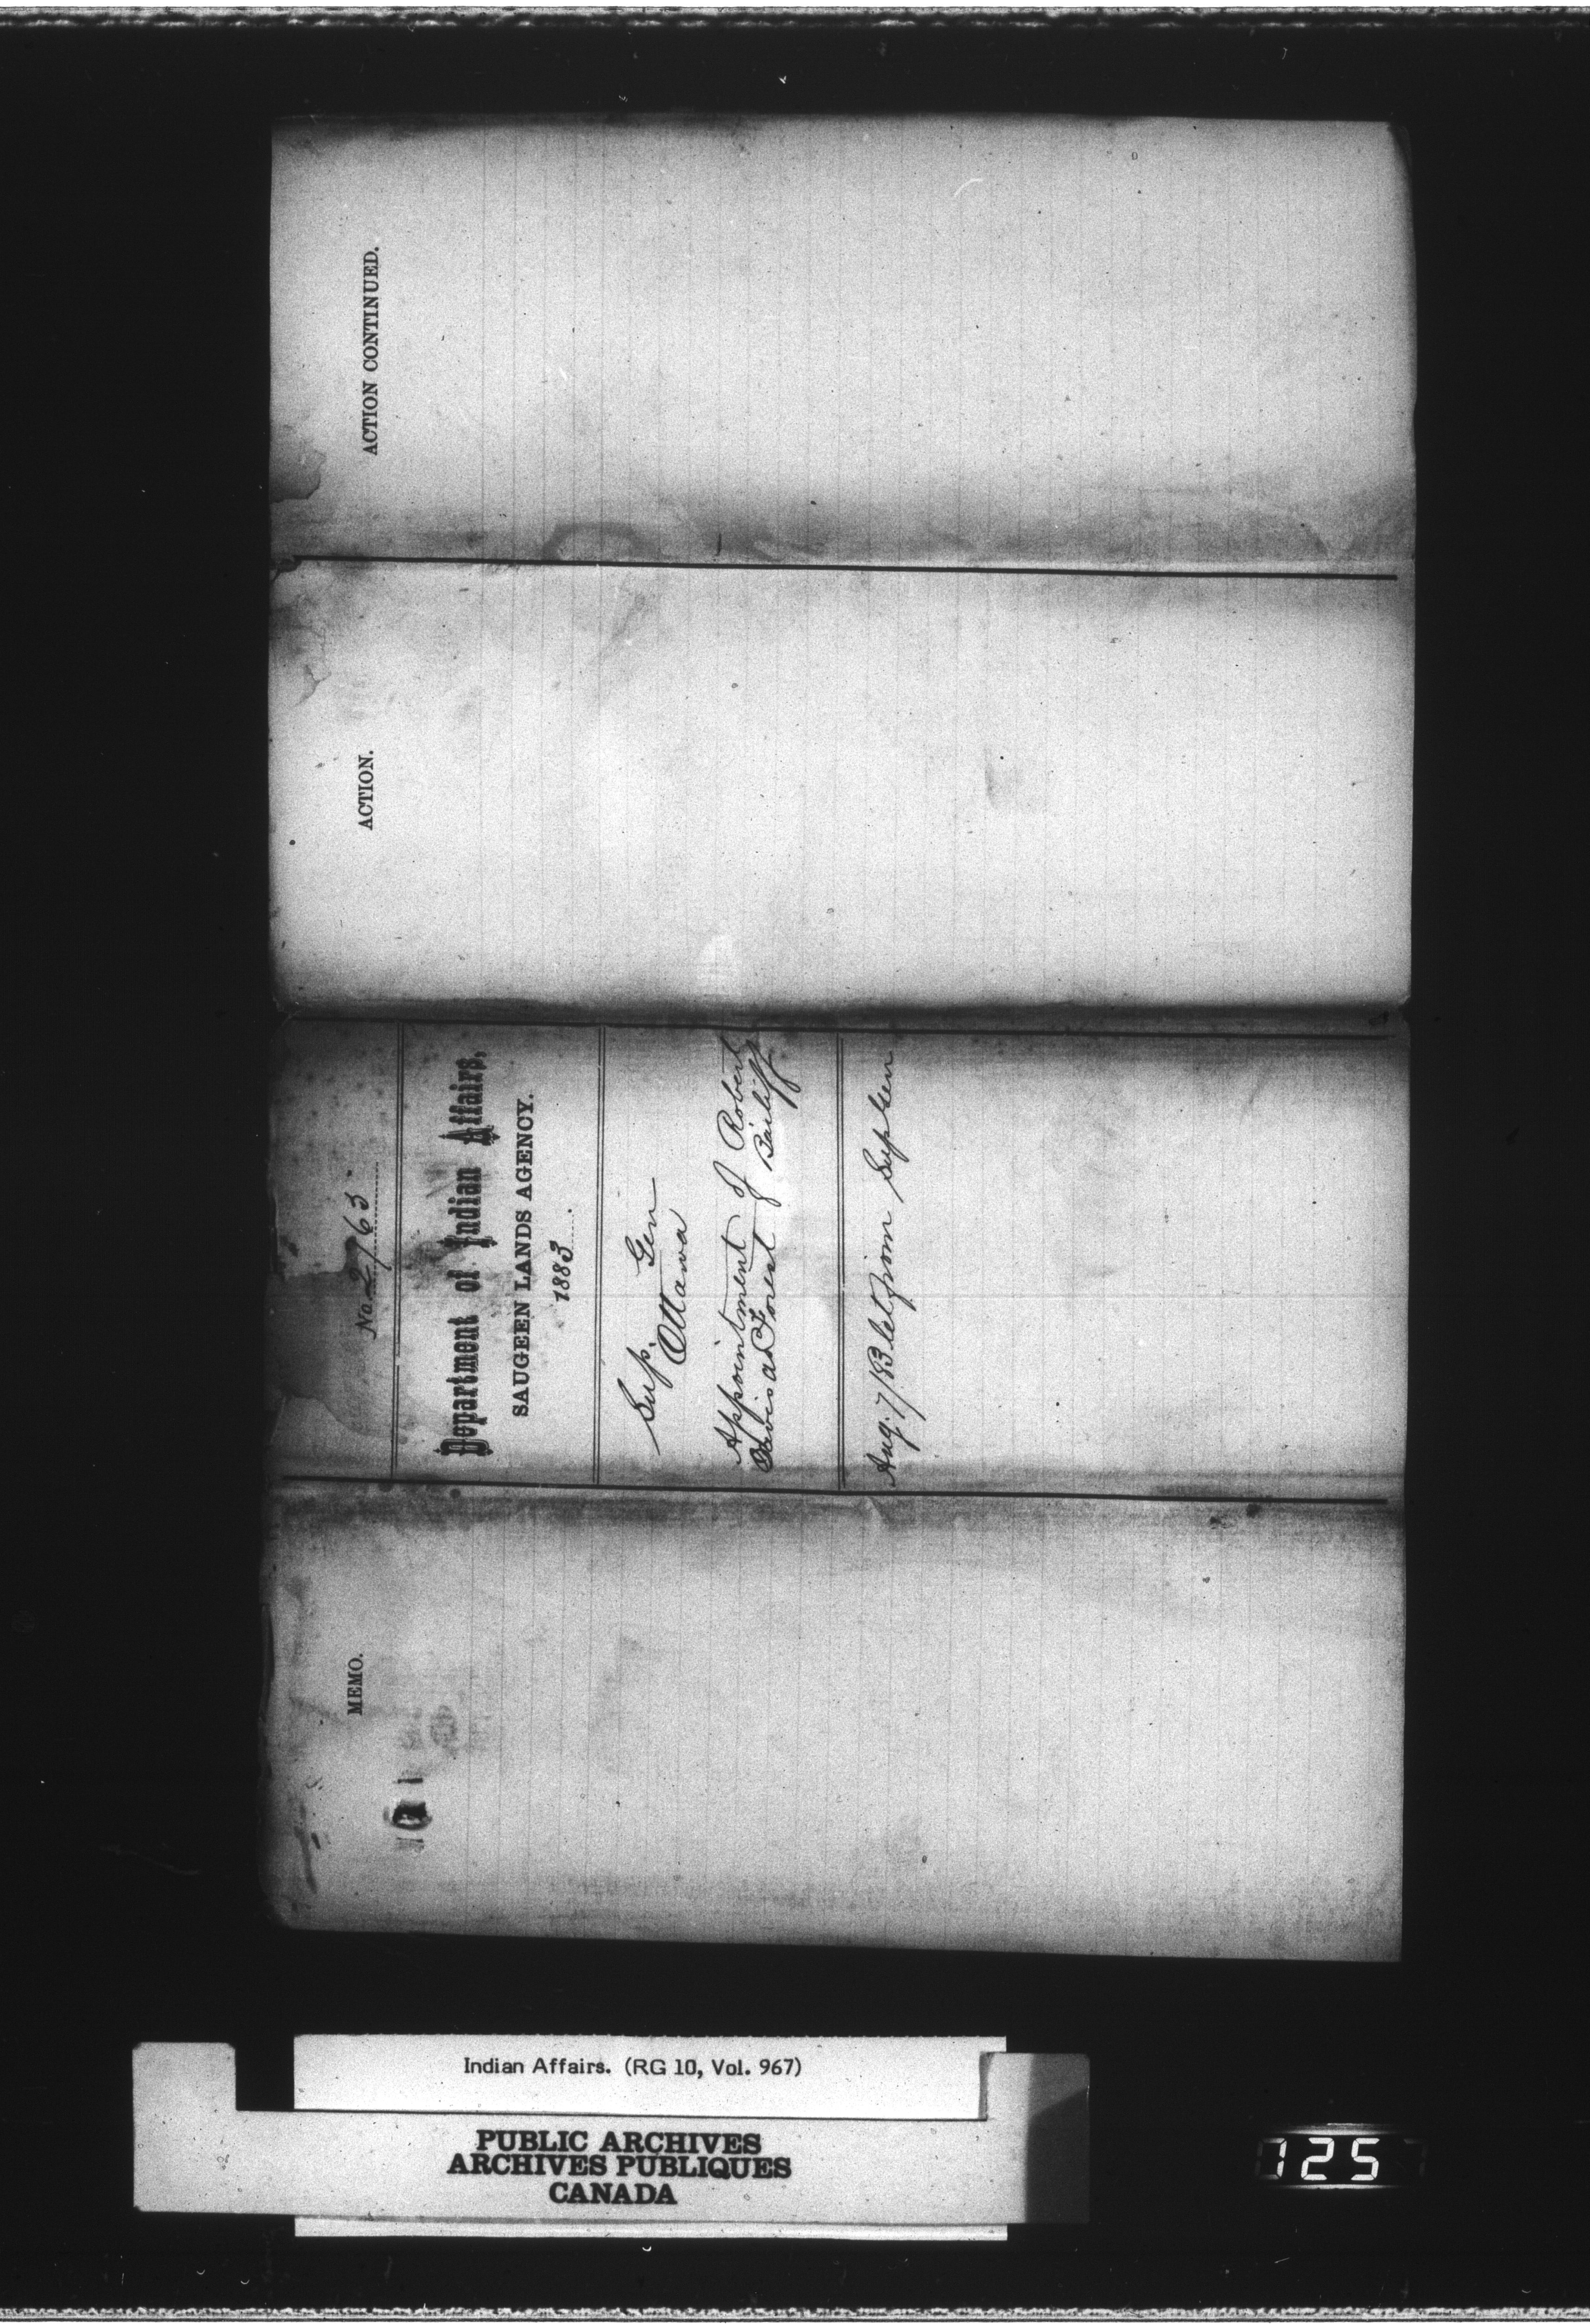 MEMO.
No 2763
Department of Indian Affairs,
SAUGEEN LANDS AGENCY.
1883
Sup. Gen
Ottawa
Appointment of Robert
Davis as Forest Bailiff
Aug. 7/83 let from Sup Gen
ACTION.
ACTION CONTINUED.
Indian Affairs. (RG 10, Vol. 967)
PUBLIC ARCHIVES
ARCHIVES PUBLIQUES
CANADA
125